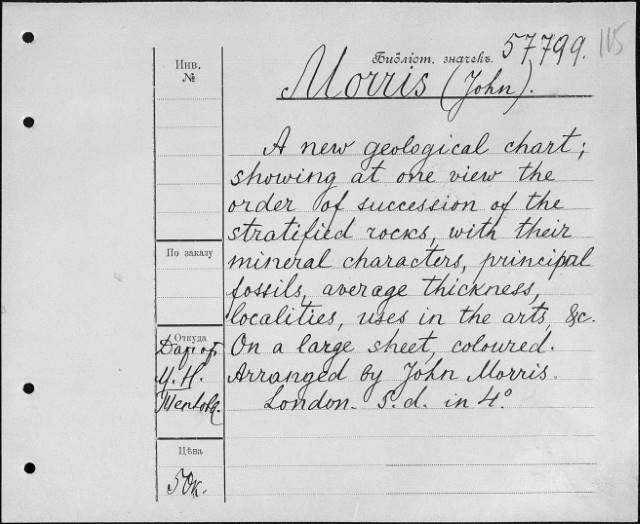 Инв. №
Библіот. значекъ. 57799.
115
Morris (John).
A new geological chart;
showing at one view the
order of succession of the
stratified rocks, with their
mineral characters, principal
fossils, average thickness,
localities, uses in the arts, &c.
On a large sheet, coloured.
Arranged by John Morris.
London. S. d. in 4°
По заказу
Откуда
Дар от
Цѣна
50к.